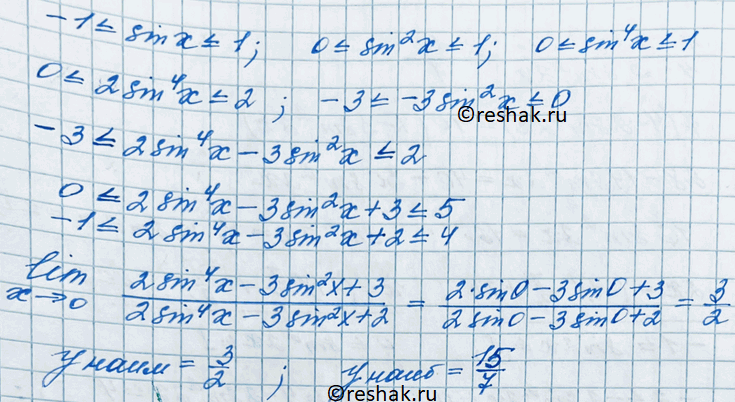 -1 ≤ sin x ≤ 1; 0 ≤ sin²x ≤ 1; 0 ≤ sin⁴x ≤ 1
0 ≤ 2sin⁴x ≤ 2 ; -3 ≤ -3sin²x ≤ 0
©reshak.ru
-3 ≤ 2sin⁴x - 3sin²x ≤ 2
0 ≤ 2sin⁴x - 3sin²x + 3 ≤ 5
-1 ≤ 2sin⁴x - 3sin²x + 2 ≤ 4
lim x→0 (2sin⁴x - 3sin²x + 3)/(2sin⁴x - 3sin²x + 2) = (2·sin0 - 3sin0 + 3)/(2sin0 - 3sin0 + 2) = 3/2
y наим = 3/2 ; y наиб = 15/7
©reshak.ru